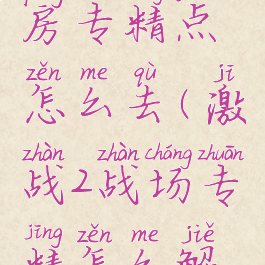 房专精点
zěn me qù jī
怎么去(激
zhàn zhàn chǎng zhuān
战2战场专
jīng zěn me jiě
精怎么解